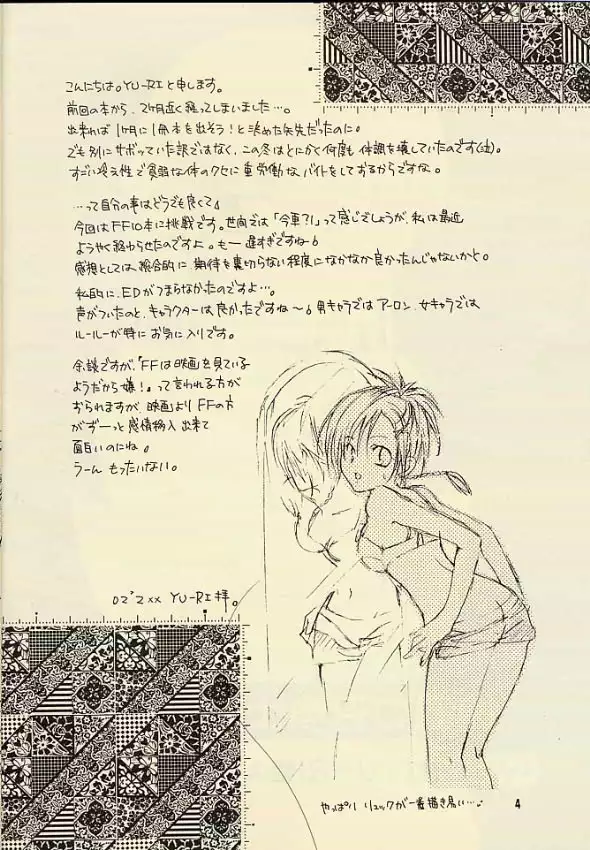 こんにちは。YU-RIと申します。
前回の本から、2ヶ月近く経ってしまいました…。
出来れば1ヶ月に1冊本を出そう！と決めた矢先だったのに。
でも別にサボっていた訳ではなく、この冬はとにかく何度も体調を壊していたのです(泣)
すごい冷え性で貧弱な体のクセに重労働なバイトをしておるからですな。
…って自分の事はどうでも良くて♪
今回はFF10本に挑戦です。世間では「今更?!」って感じでしょうが、私は最近
ようやく終わらせたのですよ。もー遅すぎですね♪
感想としては、総合的に、期待を裏切らない程度になかなか良かったんじゃないかと。
私的に、EDがつまらなかったのですよ…。
声がついたのと、キャラクターは良かったですね〜♪男キャラではアーロン、女キャラでは
ルールーが特にお気に入りです。
余談ですが、「FFは映画を見ている
ようだから嫌！」って言われる方が
おられますが、映画よりFFの方
がずーっと感情移入出来て
面白いのにね。
うーん もったいない。
02'2xx YU-RI拝。
やっぱり リュックが一番描き易い…。
4